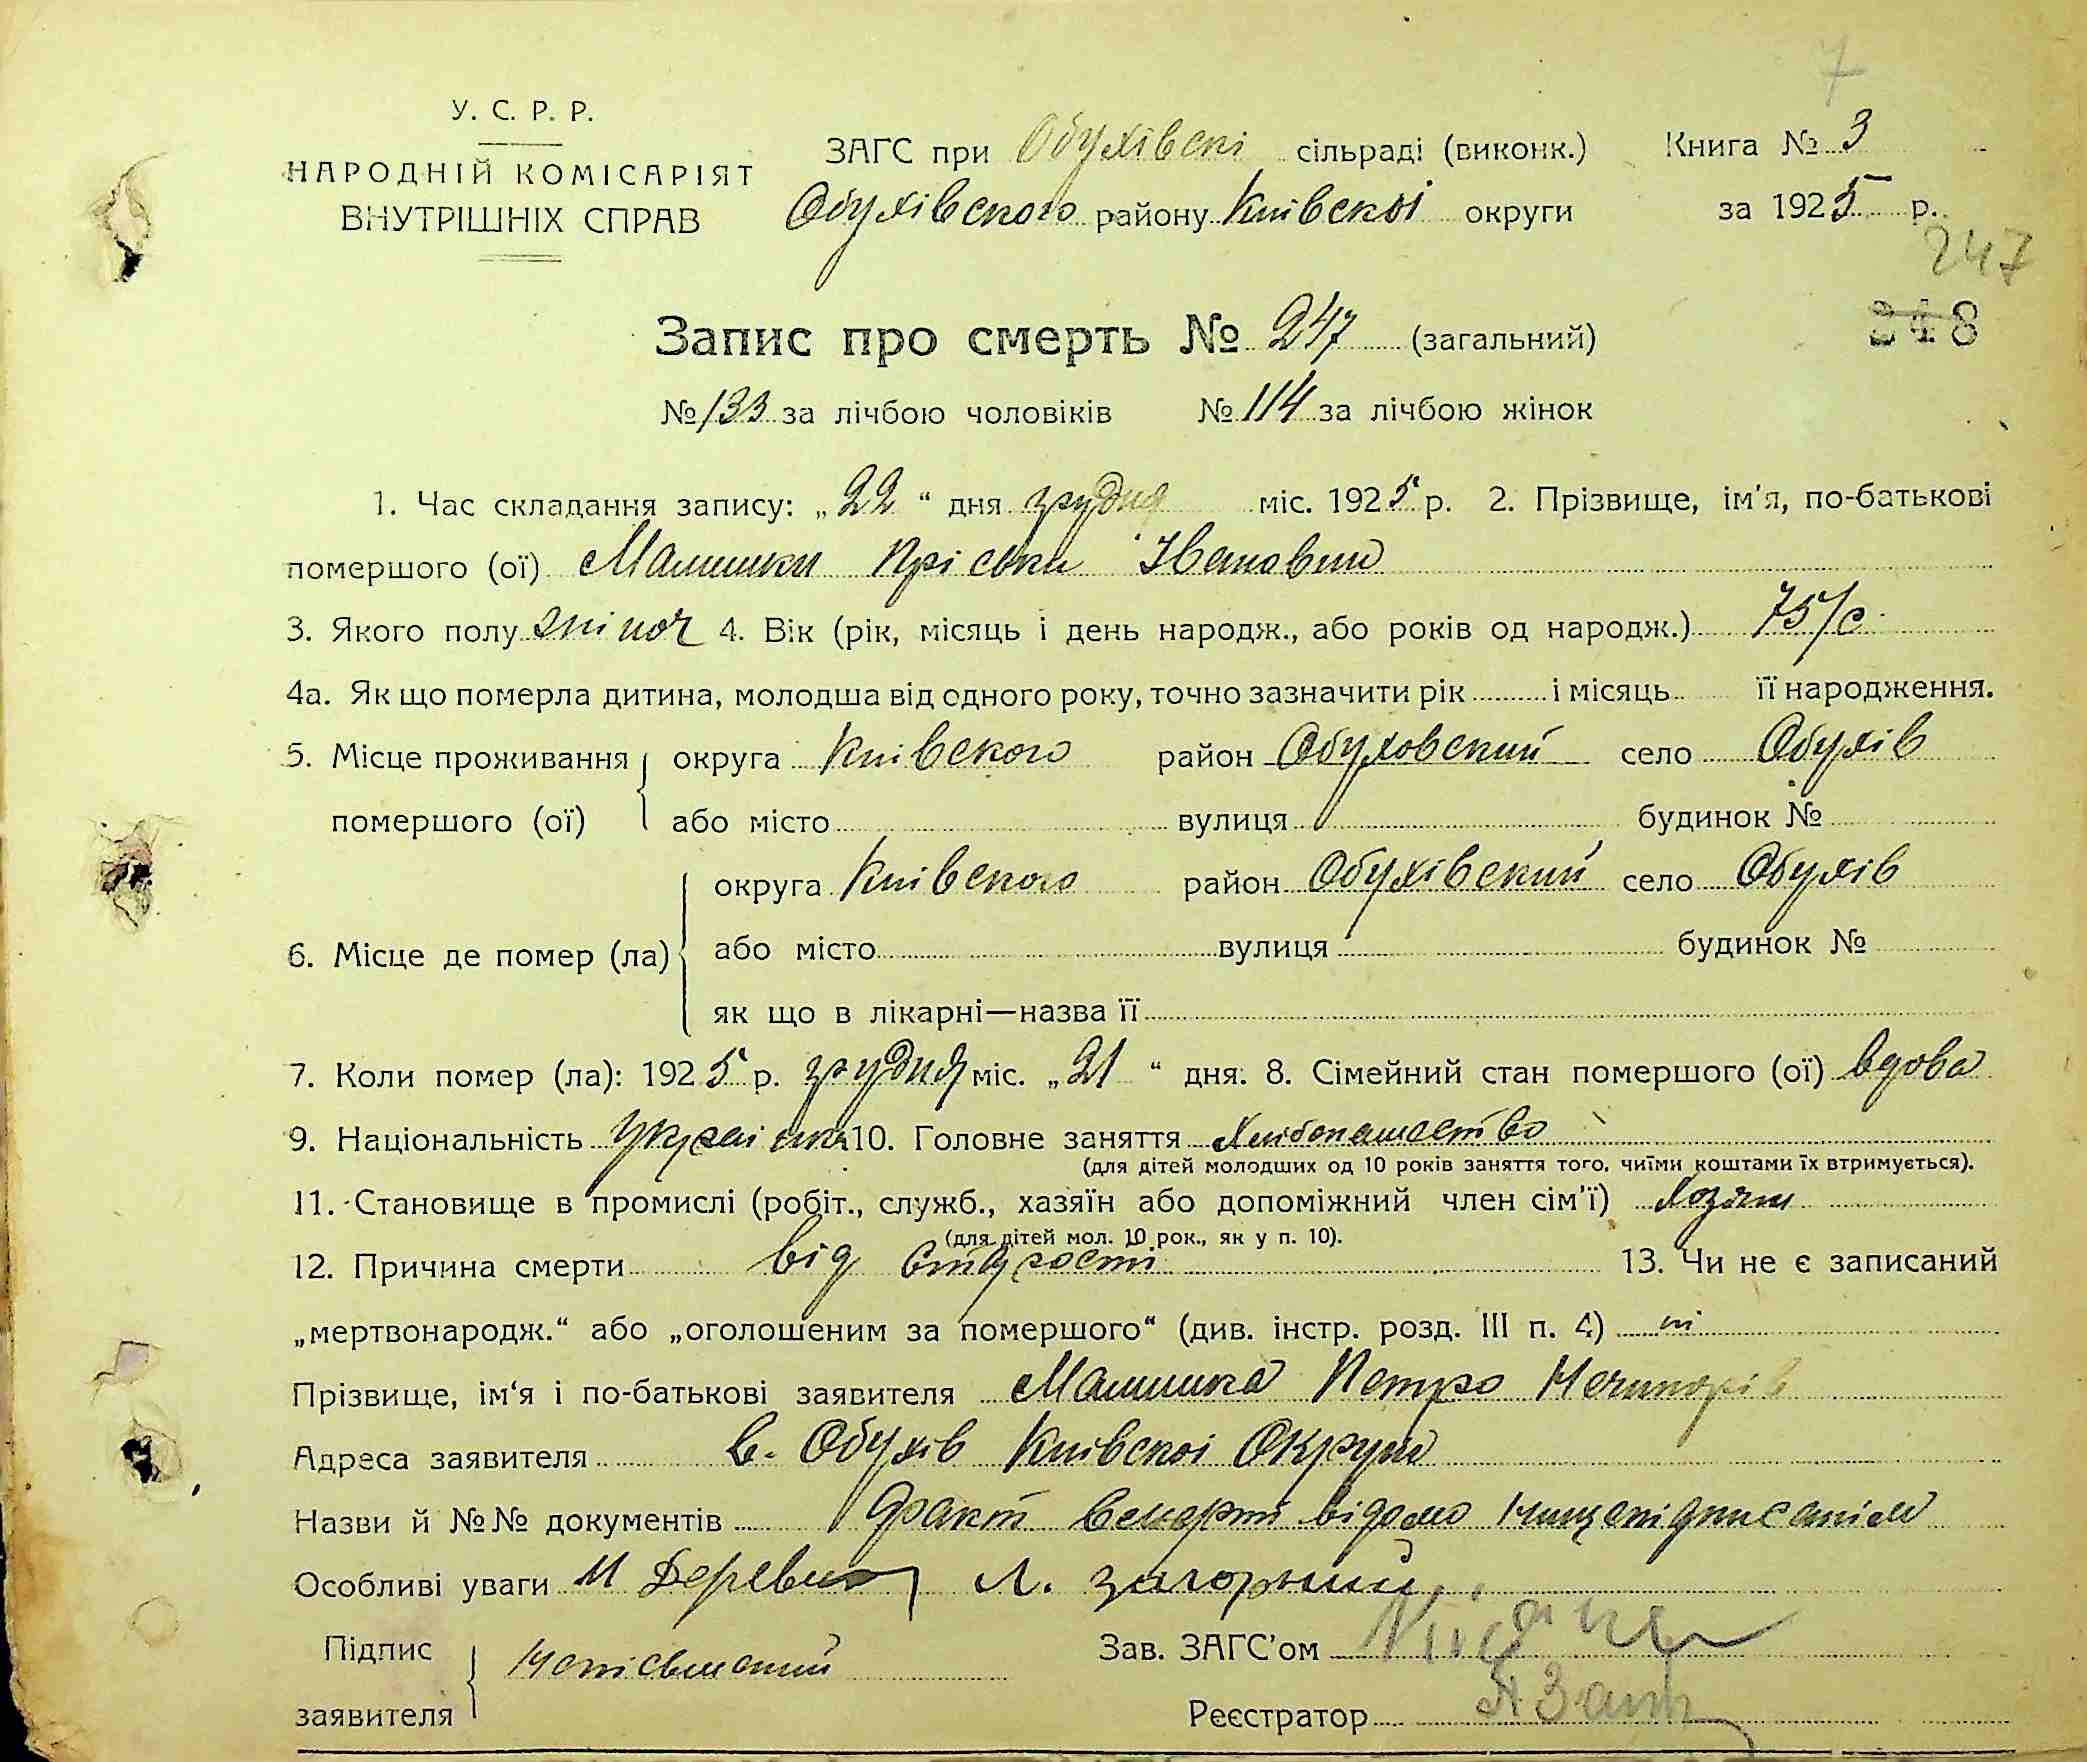 7
У. С. Р. Р.
НАРОДНІЙ КОМІСАРІЯТ
ВНУТРІШНІХ СПРАВ
ЗАГС при Обухівскі сільраді (виконк.) Книга № 3
Обухівского району Київскоі округи за 1925 р.
247
348
Запис про смерть № 247 (загальний)
№ 133 за лічбою чоловіків № 114 за лічбою жінок
1. Час складання запису: „22“ дня грудня міс. 1925 р. 2. Прізвище, ім'я, по-батькові
помершого (ої) Малишки Пріська Івановна
3. Якого полу жіноч 4. Вік (рік, місяць і день народж., або років од народж.) 75
4а. Як що померла дитина, молодша від одного року, точно зазначити рік і місяць її народження.
5. Місце проживання округа Київского район Обуховский село Обухів
помершого (ої) або місто вулиця будинок №
округа Київского район Обухівский село Обухів
6. Місце де помер (ла) або місто вулиця будинок №
як що в лікарні—назва її
7. Коли помер (ла): 1925 р. грудня міс. „21“ дня. 8. Сімейний стан помершого (ої) вдова
9. Національність украінка 10. Головне заняття Хлібопашество
(для дітей молодших од 10 років заняття того, чиїми коштами їх втримується).
11. Становище в промислі (робіт., служб., хазяїн або допоміжний член сім'ї) Хозяін
(для дітей мол. 10 рок., як у п. 10).
12. Причина смерти від старості 13. Чи не є записаний
„мертвонародж.“ або „оголошеним за помершого“ (див. інстр. розд. III п. 4) ні
Прізвище, ім'я і по-батькові заявителя Малишка Петро Нечипорів
Адреса заявителя в. Обухів Київскоі Округи
Назви й №№ документів Факт смерті відомо нищепідписаним
Особливі уваги М Л. Загорний
Підпис
заявителя неписьменний
Зав. ЗАГС'ом
Реєстратор